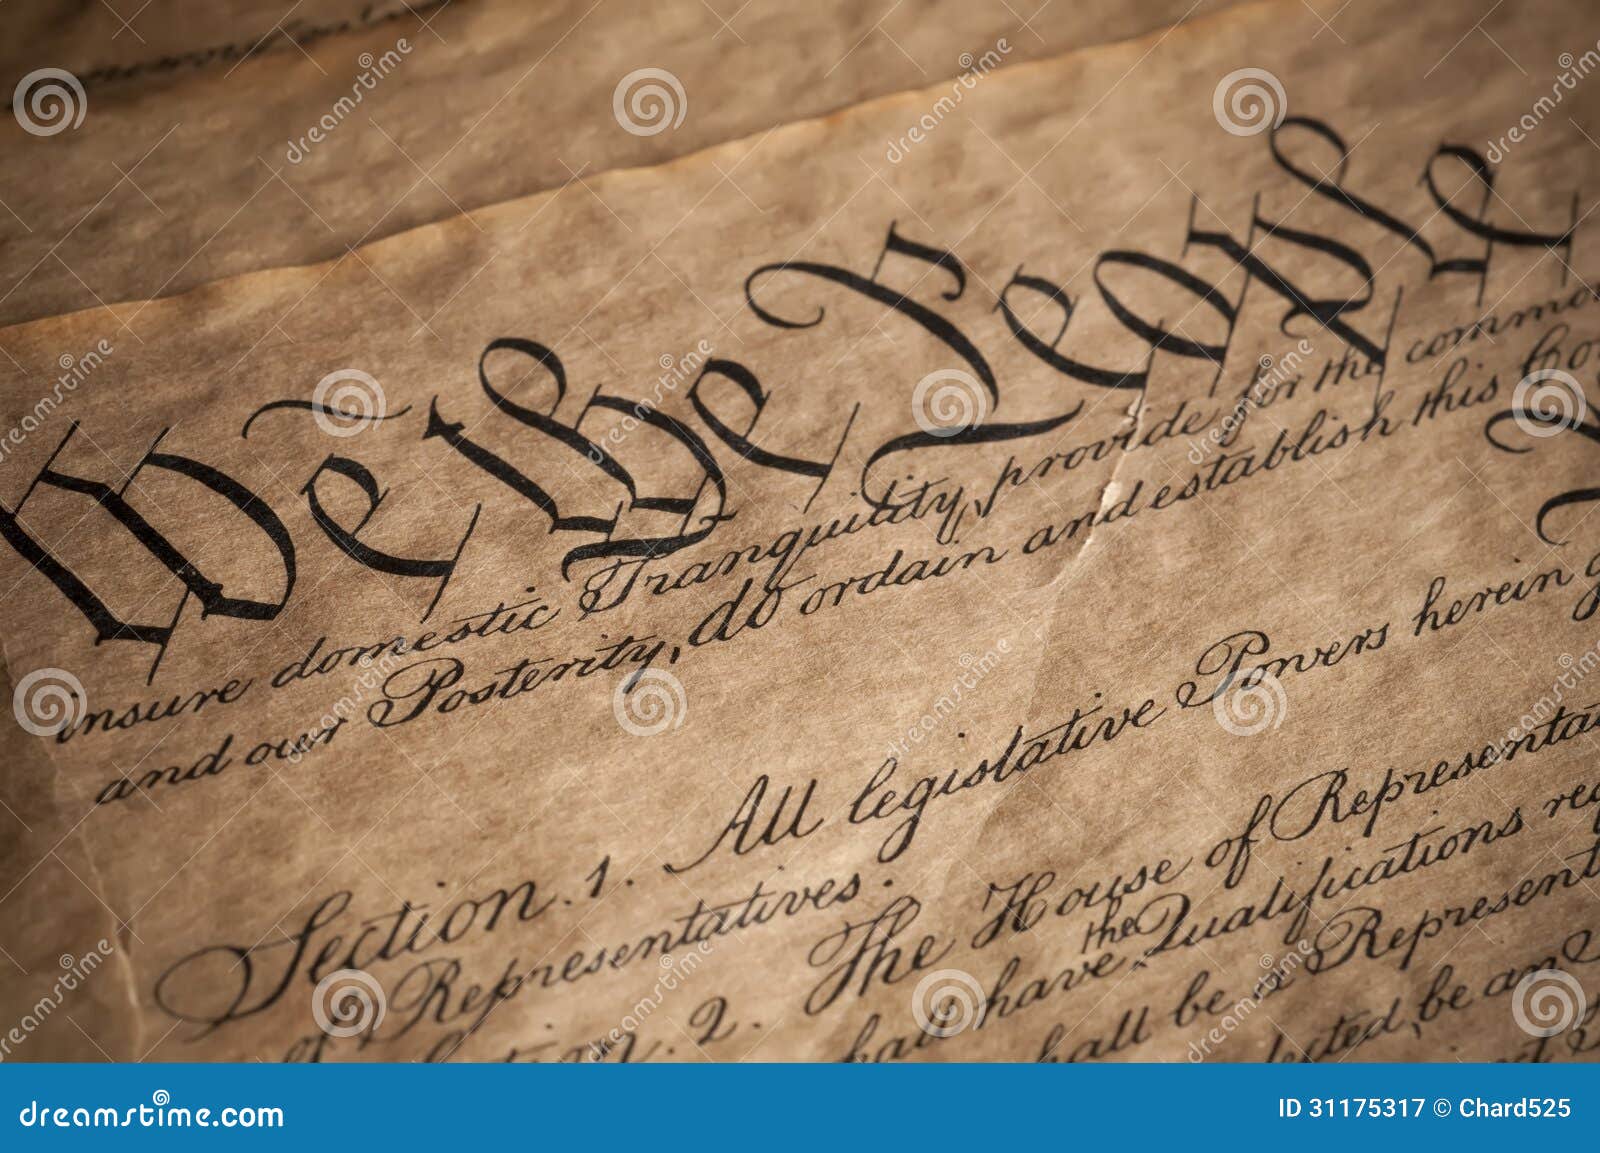 We the People
insure domestic Tranquility, provide for the common
and our Posterity, do ordain and establish this
Section. 1. All legislative Powers herein
of Representatives.
2. The House of
the
have Qualifications
shall be a
be an
dreamstime.com
ID 31175317 © Chard525